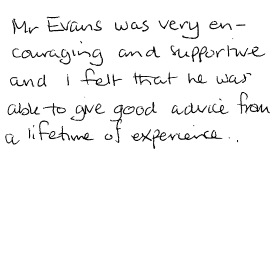 Mr Evans was very en-
couraging and supportive
and I felt that he was
able to give good advice from
a lifetime of experience..